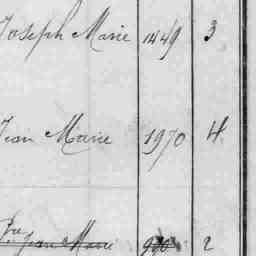 Joseph Marie 1449 3
Jean Marie 1970 4
Jean Marie 2